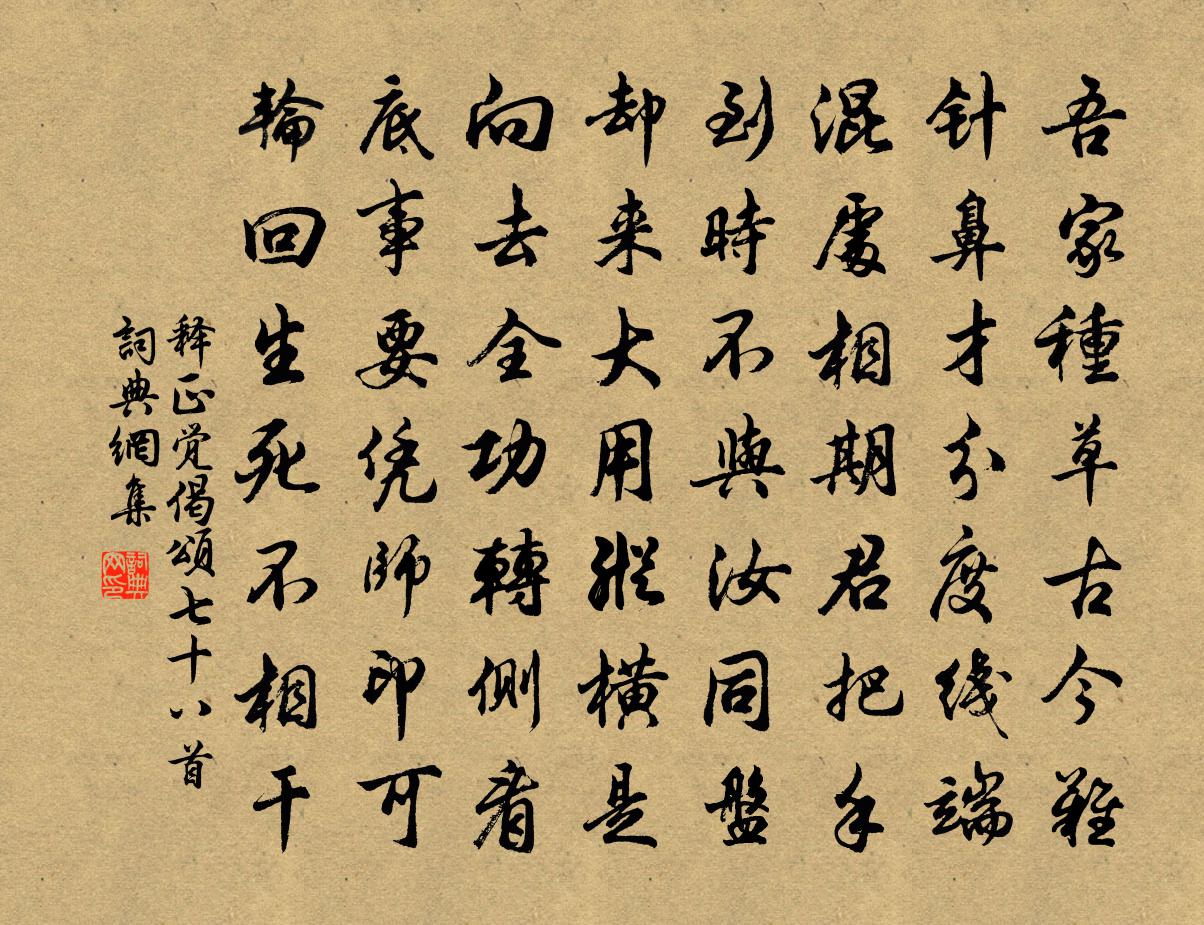 吾家種草古今難
针鼻才分度线端
混處相期君把手
到時不與汝同盤
却来大用縱橫是
向去全功轉側看
底事要凭师印可
輪回生死不相干
释正觉偈頌七十八首
詞典網集
詞典网印